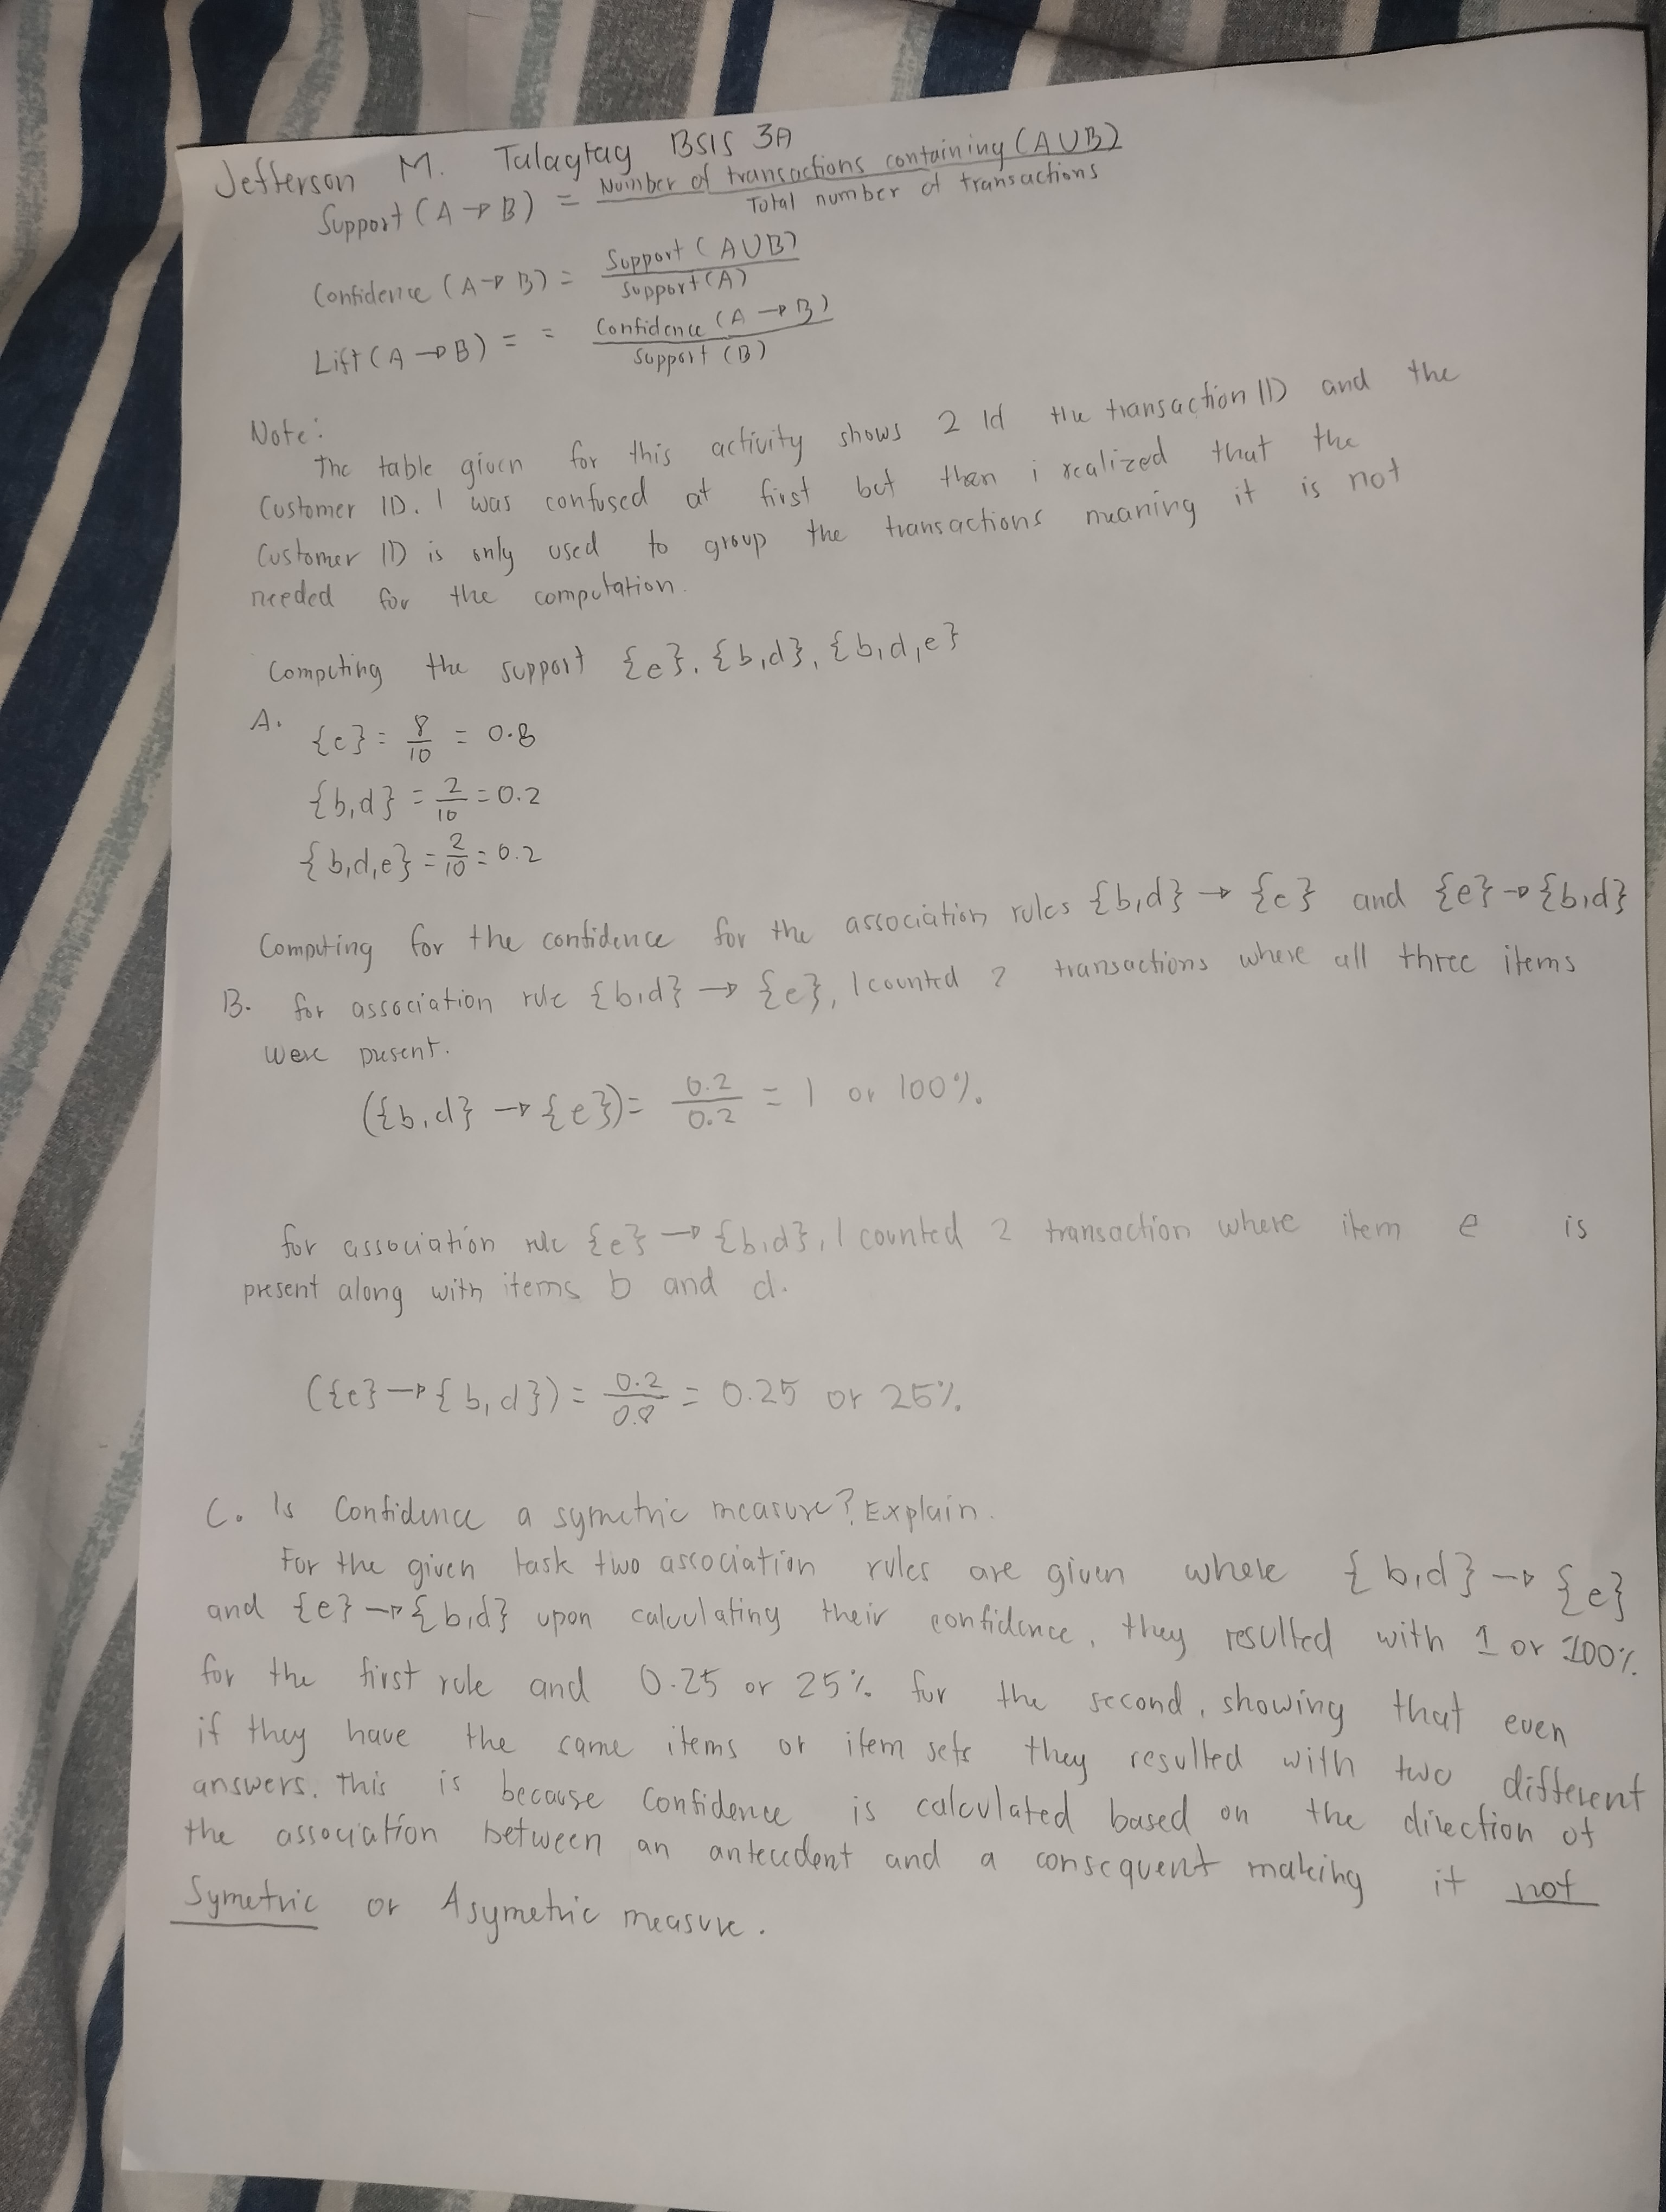 Jefferson M. Talagtag BSIS 3A
Support (A → B) = Number of transactions containing (A ∪ B)
Total number of transactions
Confidence (A → B) = Support (A ∪ B)
Support (A)
Lift (A → B) = = Confidence (A → B)
Support (B)
Note:
The table given for this activity shows 2 Id the transaction ID and the
Customer ID. I was confused at first but then i realized that the
Customer ID is only used to group the transactions meaning it is not
needed for the computation.
Computing the support {e}, {b,d}, {b,d,e}
A.
{e} = 8/10 = 0.8
{b,d} = 2/10 = 0.2
{b,d,e} = 2/10 = 0.2
Computing for the confidence for the association rules {b,d} → {e} and {e} → {b,d}
B. for association rule {b,d} → {e}, I counted 2 transactions where all three items
were present.
({b,d} → {e}) = 0.2/0.2 = 1 or 100%.
for association rule {e} → {b,d}, I counted 2 transaction where item e is
present along with items b and d.
({e} → {b,d}) = 0.2/0.8 = 0.25 or 25%.
C. Is Confidence a symetric measure? Explain.
For the given task two association rules are given where {b,d} → {e}
and {e} → {b,d} upon calculating their confidence, they resulted with 1 or 100%
for the first rule and 0.25 or 25% for the second, showing that even
if they have the same items or item sets they resulted with two different
answers. This is because Confidence is calculated based on the direction of
the association between an antecedent and a consequent making it not
Symetric or Asymetric measure.